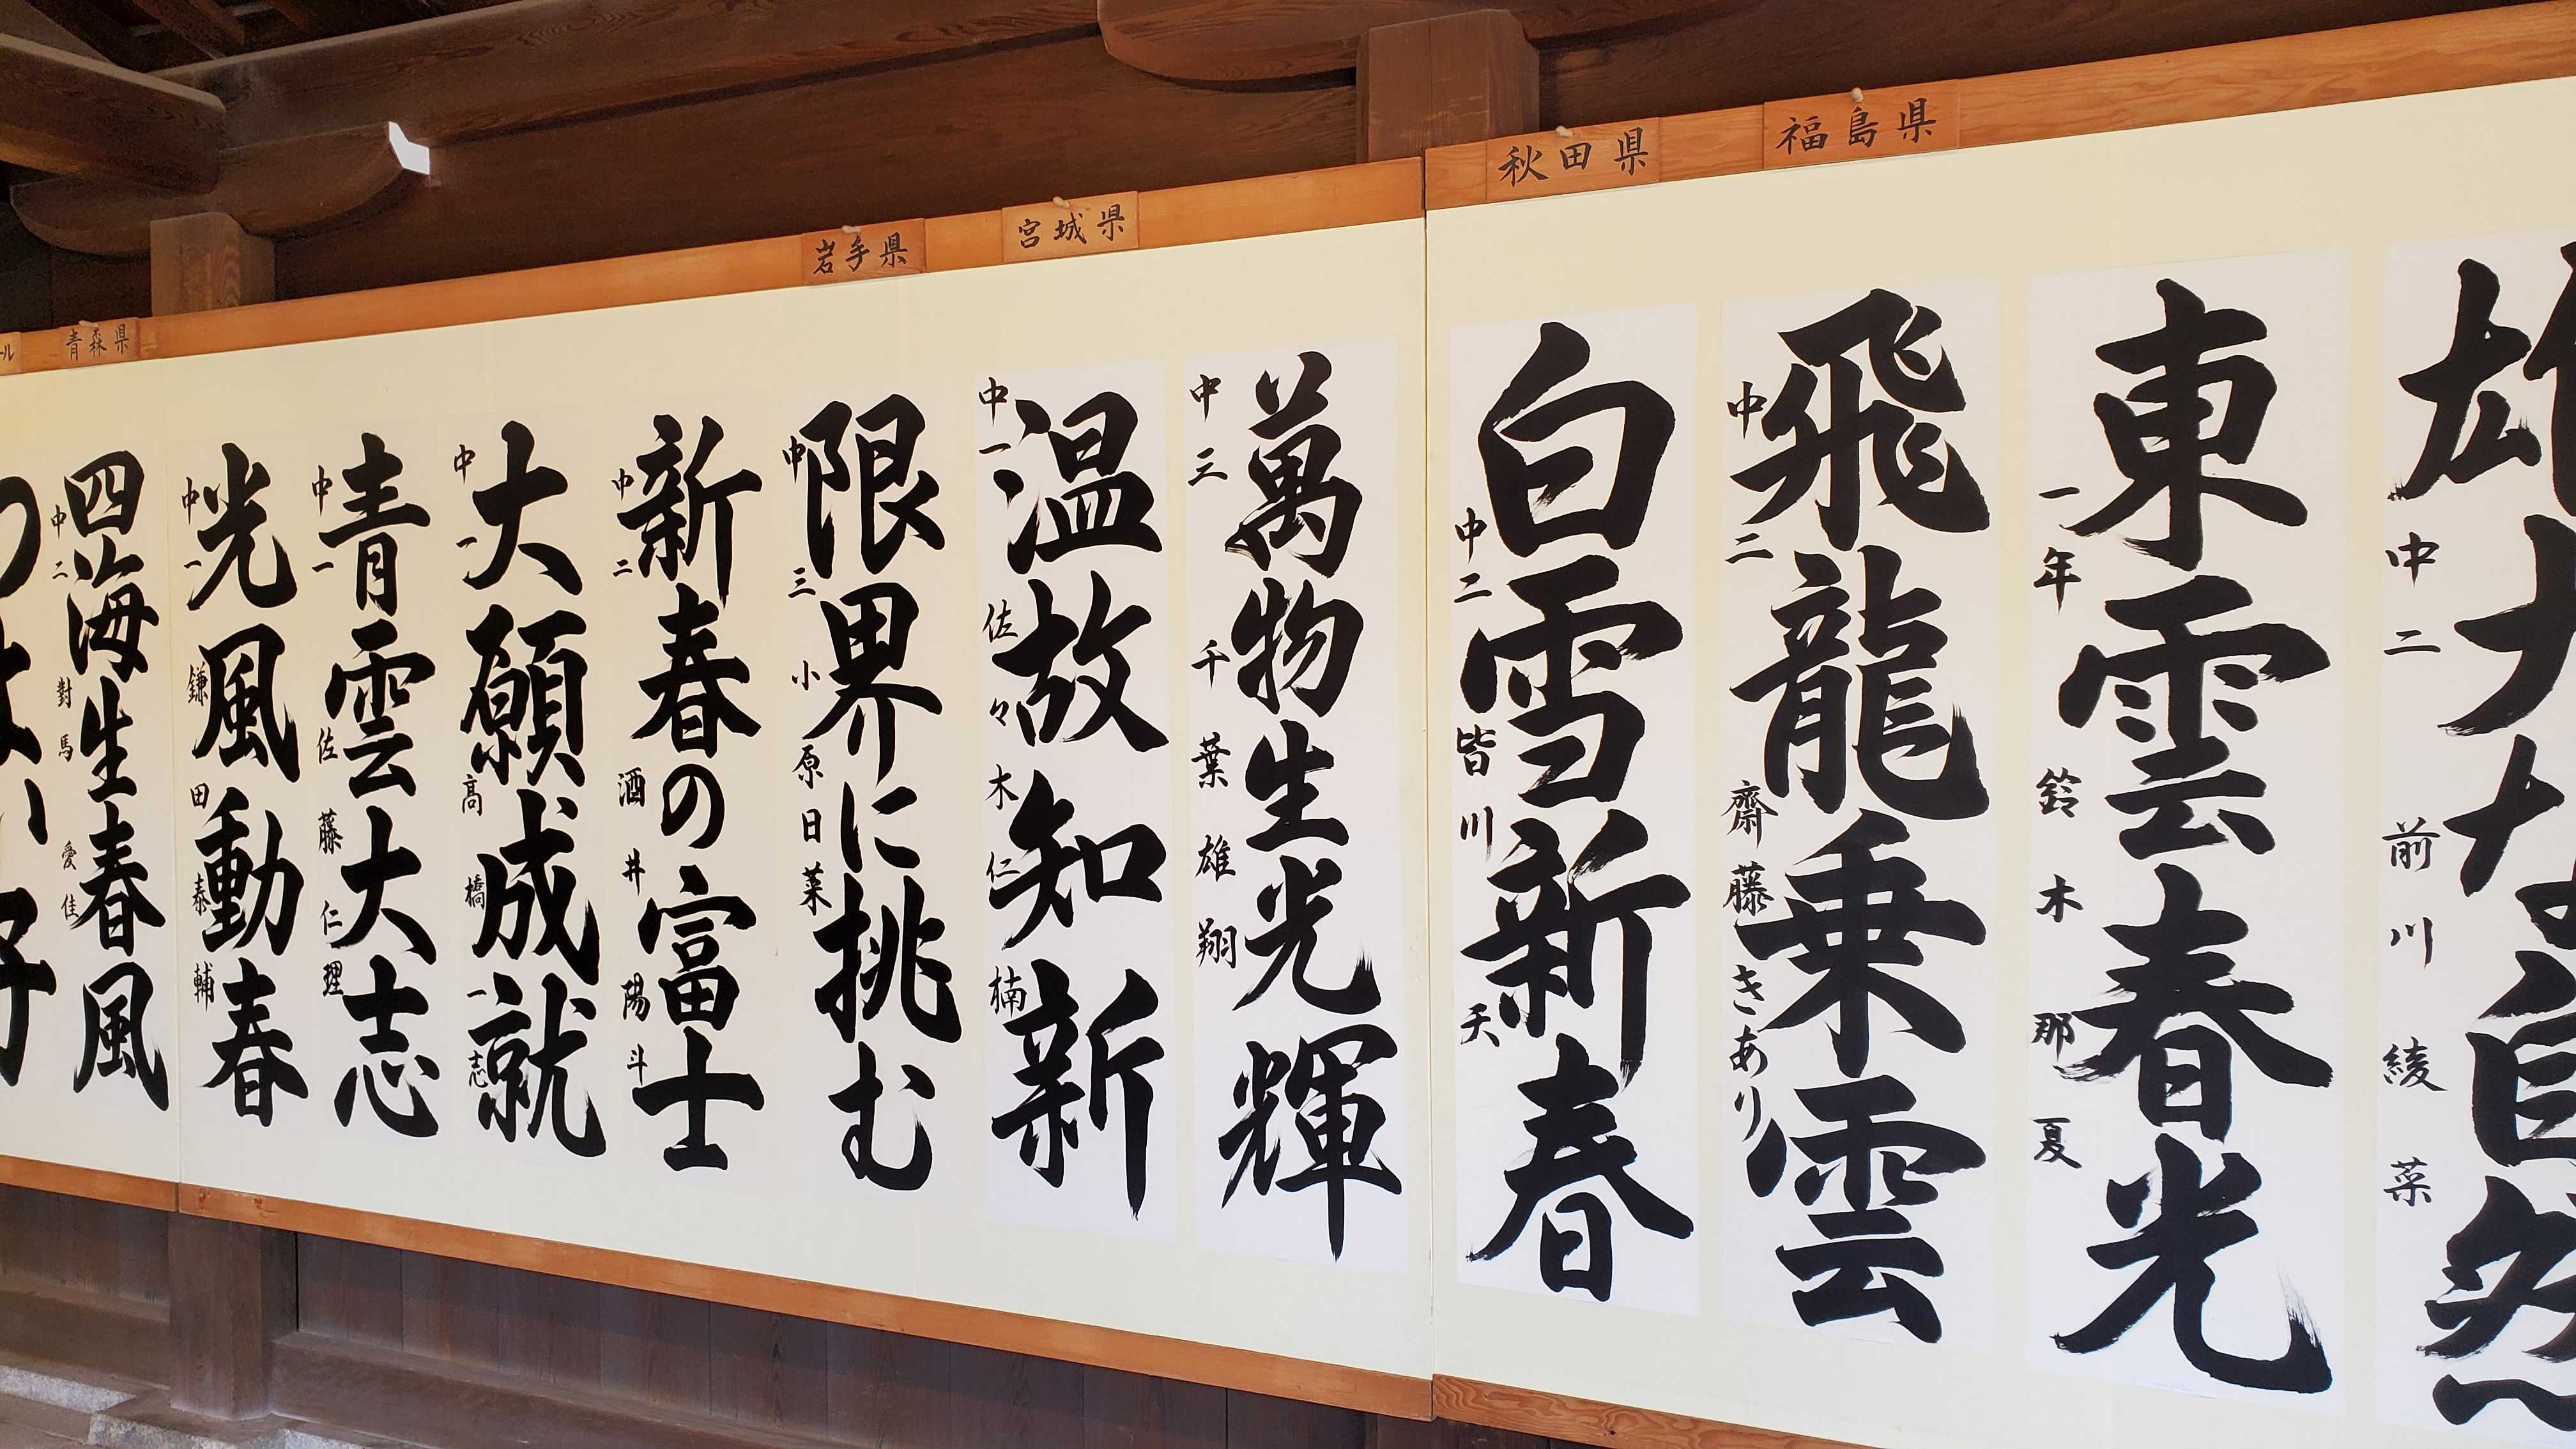 青森県
岩手県
宮城県
秋田県
福島県
四海生春風
中二 對馬愛佳
光風動春
中一 鎌田泰輔
青雲大志
中一 佐藤仁理
大願成就
中一 高橋一志
新春の富士
中二 酒井陽斗
限界に挑む
中三 小原日菜
温故知新
中一 佐々木仁楠
萬物生光輝
中三 千葉雄翔
白雪新春
中二 皆川天
飛龍乗雲
中二 齋藤きあり
東雲春光
一年 鈴木那夏
雄大な自然
中二 前川綾菜